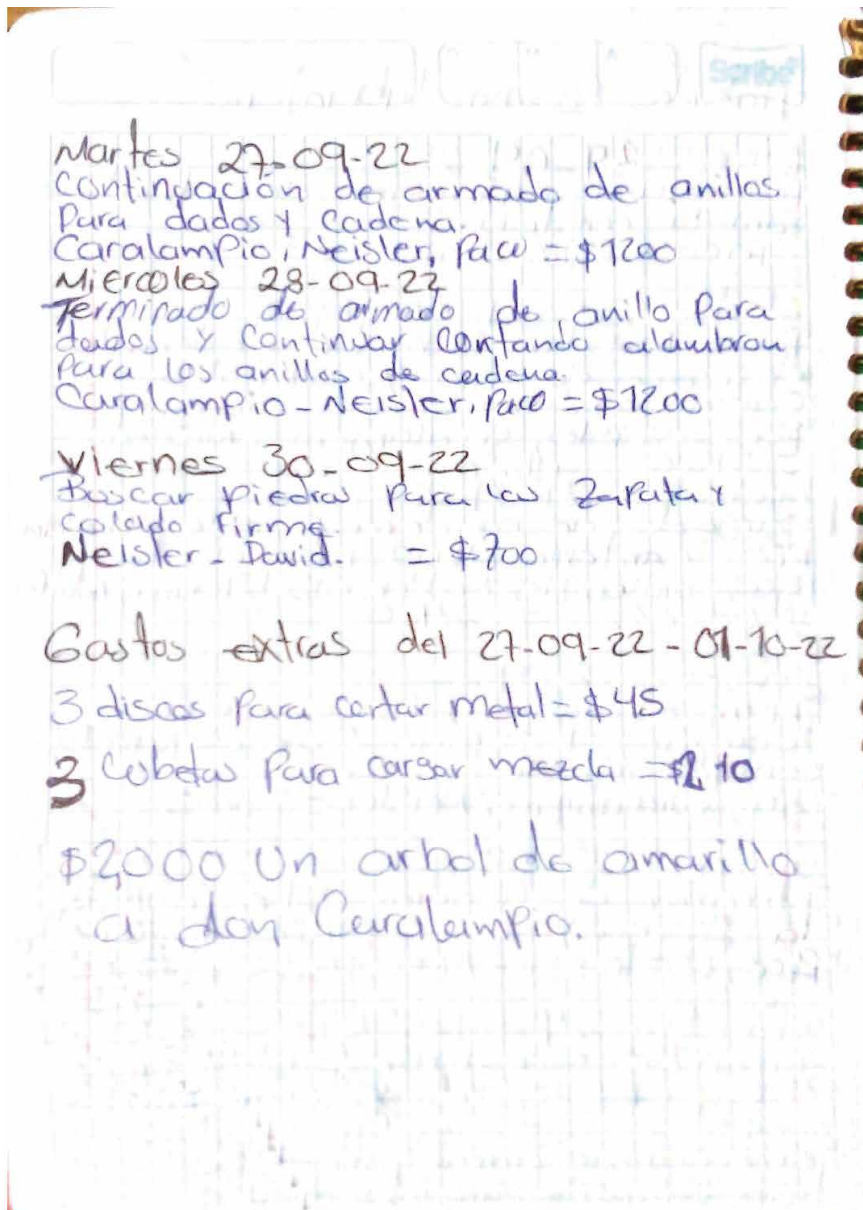 Scribe
Martes 27-09-22
Continuación de armado de anillos
Para dados y Cadena.
Caralampio, Neisler, Paco = $1200
Miercoles 28-09-22
Terminado de armado de anillo Para
dados y Continuar Contando alambron
Para los anillos de cadena.
Caralampio - Neisler, Paco = $1200
Viernes 30-09-22
Buscar piedras Para las Zapata y
colado firme.
Neisler - David. = $700
Gastos extras del 27-09-22 - 01-10-22
3 discos Para cortar metal = $45
3 Cubetas Para cargar mezcla = $210
$2,000 Un arbol de amarillo
a don Caralampio.